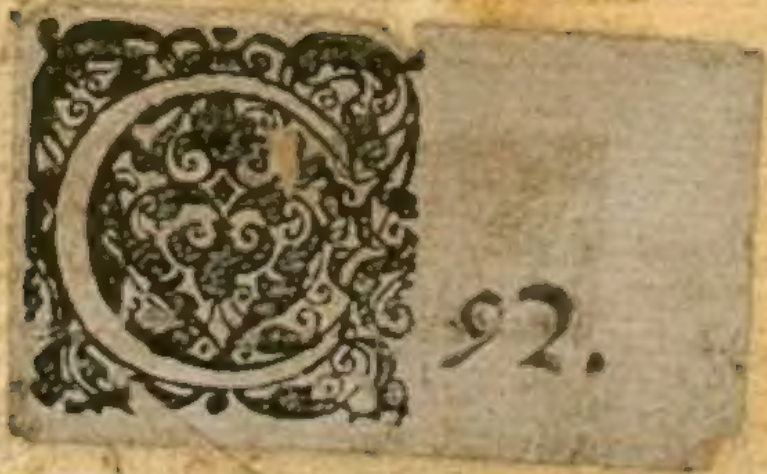 C 92.